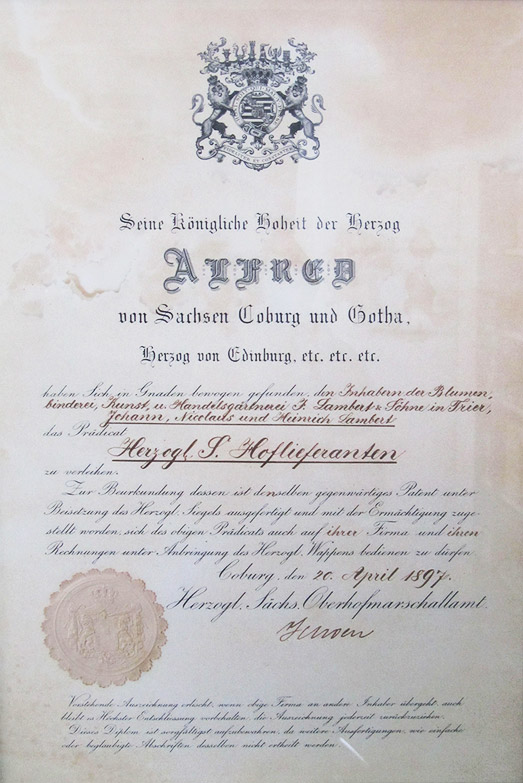 Seine Königliche Hoheit der Herzog
ALFRED
von Sachsen Coburg und Gotha,
Herzog von Edinburg, etc. etc. etc.
haben Sich in Gnaden bewogen gefunden, den Inhabern der Blumen,
binderei, Kunst, u. Handelsgärtnerei J. Lambert & Söhne in Trier,
Johann, Nicolaus und Heinrich Lambert
das Prädicat
Herzogl. S. Hoflieferanten
zu verleihen.
Zur Beurkundung dessen ist denselben gegenwärtiges Patent unter
Beisetzung des Herzogl. Siegels ausgefertigt und mit der Ermächtigung zuge-
stellt worden, sich des obigen Prädicats auch auf ihrer Firma und ihren
Rechnungen unter Anbringung des Herzogl. Wappens bedienen zu dürfen.
Coburg, den 20. April 1897.
Herzogl. Sächs. Oberhofmarschallamt.
Vorstehende Auszeichnung erlischt, wenn obige Firma an andere Inhaber übergeht, auch
bleibt es Höchster Entschliessung vorbehalten die Auszeichnung jederzeit zurückzuziehen.
Dieses Diplom ist sorgfältigst aufzubewahren, da weitere Ausfertigungen, wie einfache
oder beglaubigte Abschriften desselben nicht ertheilt werden.